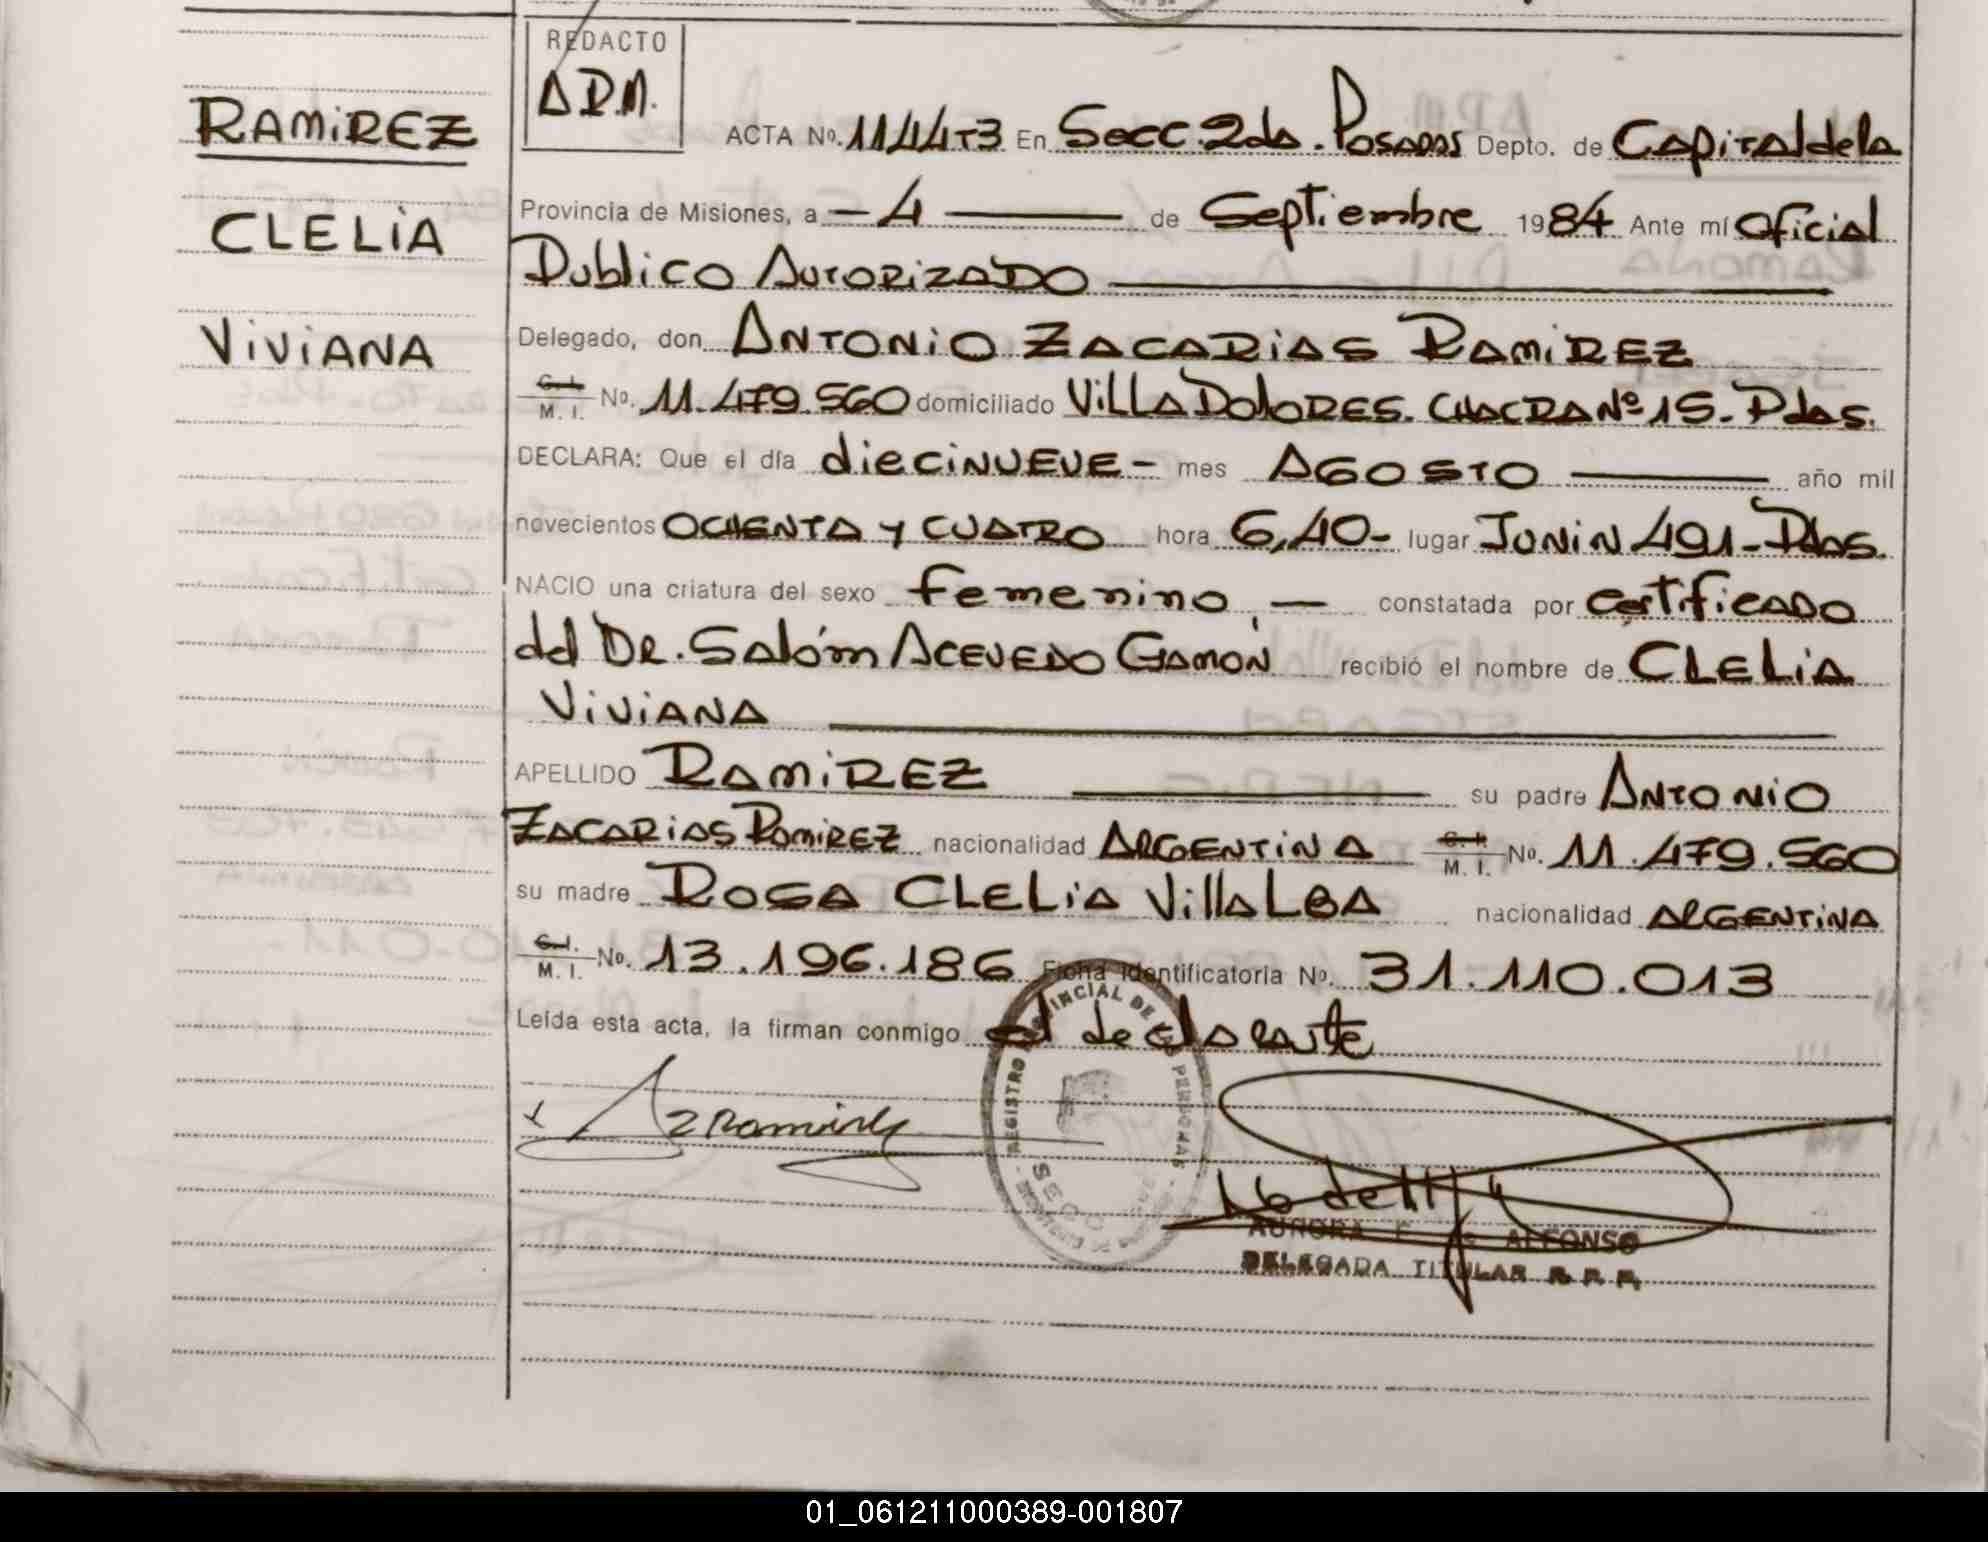 RAMIREZ
CLELIA
VIVIANA
REDACTO
A.R.M.
ACTA Nº. 1144T3 En Secc. 2da. Posadas Depto. de Capital de la
Provincia de Misiones, a - 4 - de Septiembre 1984 Ante mí Oficial
Publico Autorizado
Delegado, don ANTONIO ZACARIAS RAMIREZ
C. I.
M. I. Nº. 11.479.560 domiciliado Villa Dolores. CHACRA Nº 15 - Pdas.
DECLARA: Que el día diecinueve - mes AGOSTO año mil
novecientos OCHENTA y CUATRO hora 6,40- lugar JUNIN 491 - Pdas.
NACIO una criatura del sexo femenino, - constatada por certificado
del DR. Salóm ACEVEDO GAMON recibió el nombre de CLELIA
VIVIANA
APELLIDO RAMIREZ su padre ANTONIO
ZACARIAS RAMIREZ nacionalidad ARGENTINA C. I.
M. I. Nº. 11.479.560
su madre ROSA CLELIA VillaLBA nacionalidad ARGENTINA
C. I.
M. I. Nº. 13.196.186 Ficha Identificatoria Nº. 31.110.013
Leída esta acta, la firman conmigo el declarante
AZRamirez
REGISTRO PROVINCIAL DE LAS PERSONAS
AURORA ALFONSO
DELEGADA TITULAR R. P. P.
01_061211000389-001807